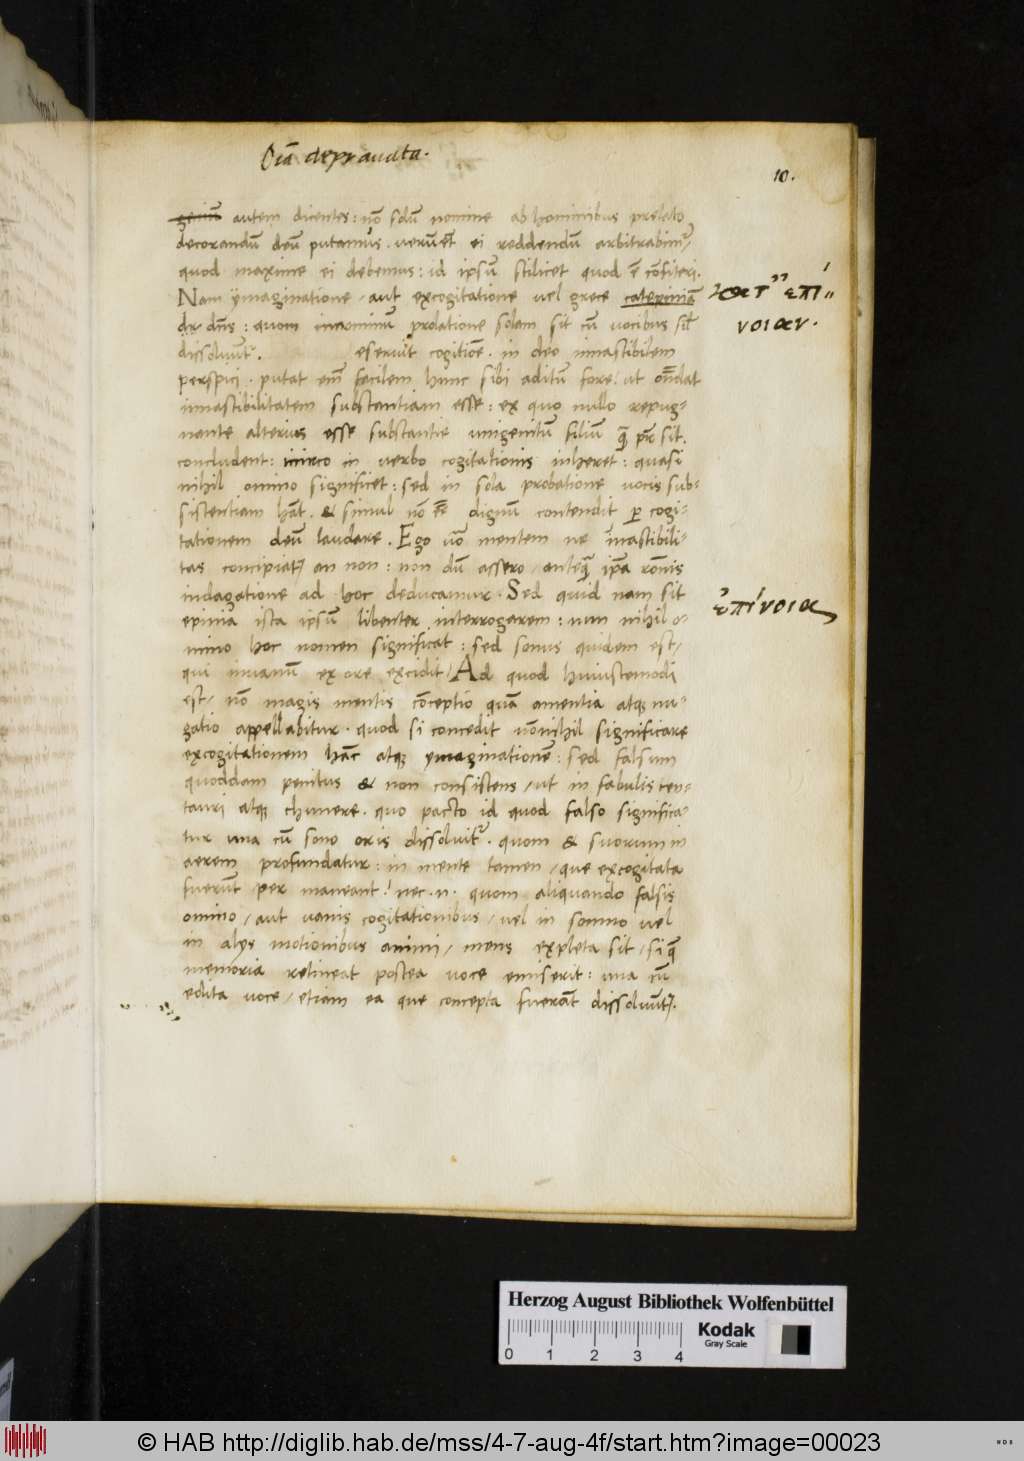 Oīa deprauata.
10.
genitū autem dicentes: nō solū nomine ab hominibus prelato
decorandū deū putamus. verūetˉ ei reddendū arbitrabimˉ
quod maxime ei debemus: id ipsū scilicet quod ē cōfiteri.
Nam ymaginatione / aut excogitatione vel grece catepiniā
κατ' ἐπί"
dr dn̄s: quom inaminū prolatione solam sit cū vocibus siˡ
νοιαν.
dissoluūtˉ. eseruit cogitiōe. in deo inuastibilem
perspici. putat em̄ facilem hunc sibi aditū fore: ut ondat
inuastibilitatem substantiam esse: ex quo nullo repug-
nante alterius esse substantie unigenitū filiū quā pr̄ sit.
concludent: in verbo cogitationis inheret: quasi
nihil omino significet: sed in sola probatione vocis sub-
sistentiam hāt. & simul nō eē dignū contendit per cogi-
tationem deū laudare. Ego vō mentem ne inuastibili-
tas concipiatˉ an non: non dū assero / anteqā ipā rōnis
indagatione ad hoc deducamur. Sed quid nam sit
ἐπίνοια
epinia ista ipsū libenter interrogarem: num nihil o-
mino hoc nomen significat: sed sonus quidem est /
qui inuanū ex ore excidit / Ad quod huiuscemodi
est / nō magis mentis cōceptio quā amentia atqꝫ nu-
gatio appellabitur. quod si concedit nōnihil significare
excogitationem hāc atqꝫ ymaginationē: sed falsum
quoddam penitus & non consistens / ut in fabulis cen-
tauri atqꝫ chimere. quo pacto id quod falso significa-
tur una cū sono oris dissoluitˉ. quom & suorum in
aerem profundatur: in mente tamen / que excogitata
fuerūt / per maneant! nec. n. quom aliquando falsis
omino / aut vanis cogitationibus / vel in somno vel
in alijs motionibus animi / mens expleta sit / siqꝫ
memoria retineat postea voce emiserit: una cū
edita voce / etiam ea que concepta fuerāt dissoluūtˉ.
Herzog August Bibliothek Wolfenbüttel
Kodak
Gray Scale
0 1 2 3 4
© HAB http://diglib.hab.de/mss/4-7-aug-4f/start.htm?image=00023